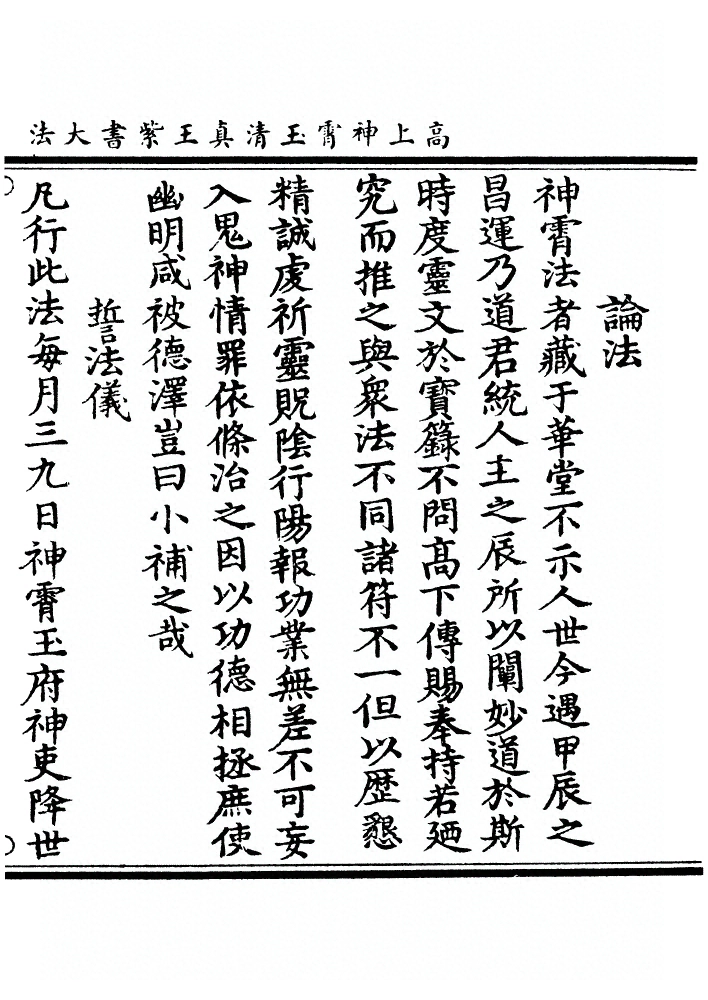 高上神霄玉清真王紫書大法
論法
神霄法者藏于華堂不示人世今遇甲辰之
昌運乃道君統人主之辰所以闡妙道於斯
時度靈文於寶籙不問高下傳賜奉持若廼
究而推之與衆法不同諸符不一但以歷懇
精誠虔祈靈貺陰行陽報功業無差不可妄
入鬼神情罪依條治之因以功德相拯庶使
幽明咸被德澤豈曰小補之哉
誓法儀
凡行此法每月三九日神霄玉府神吏降世